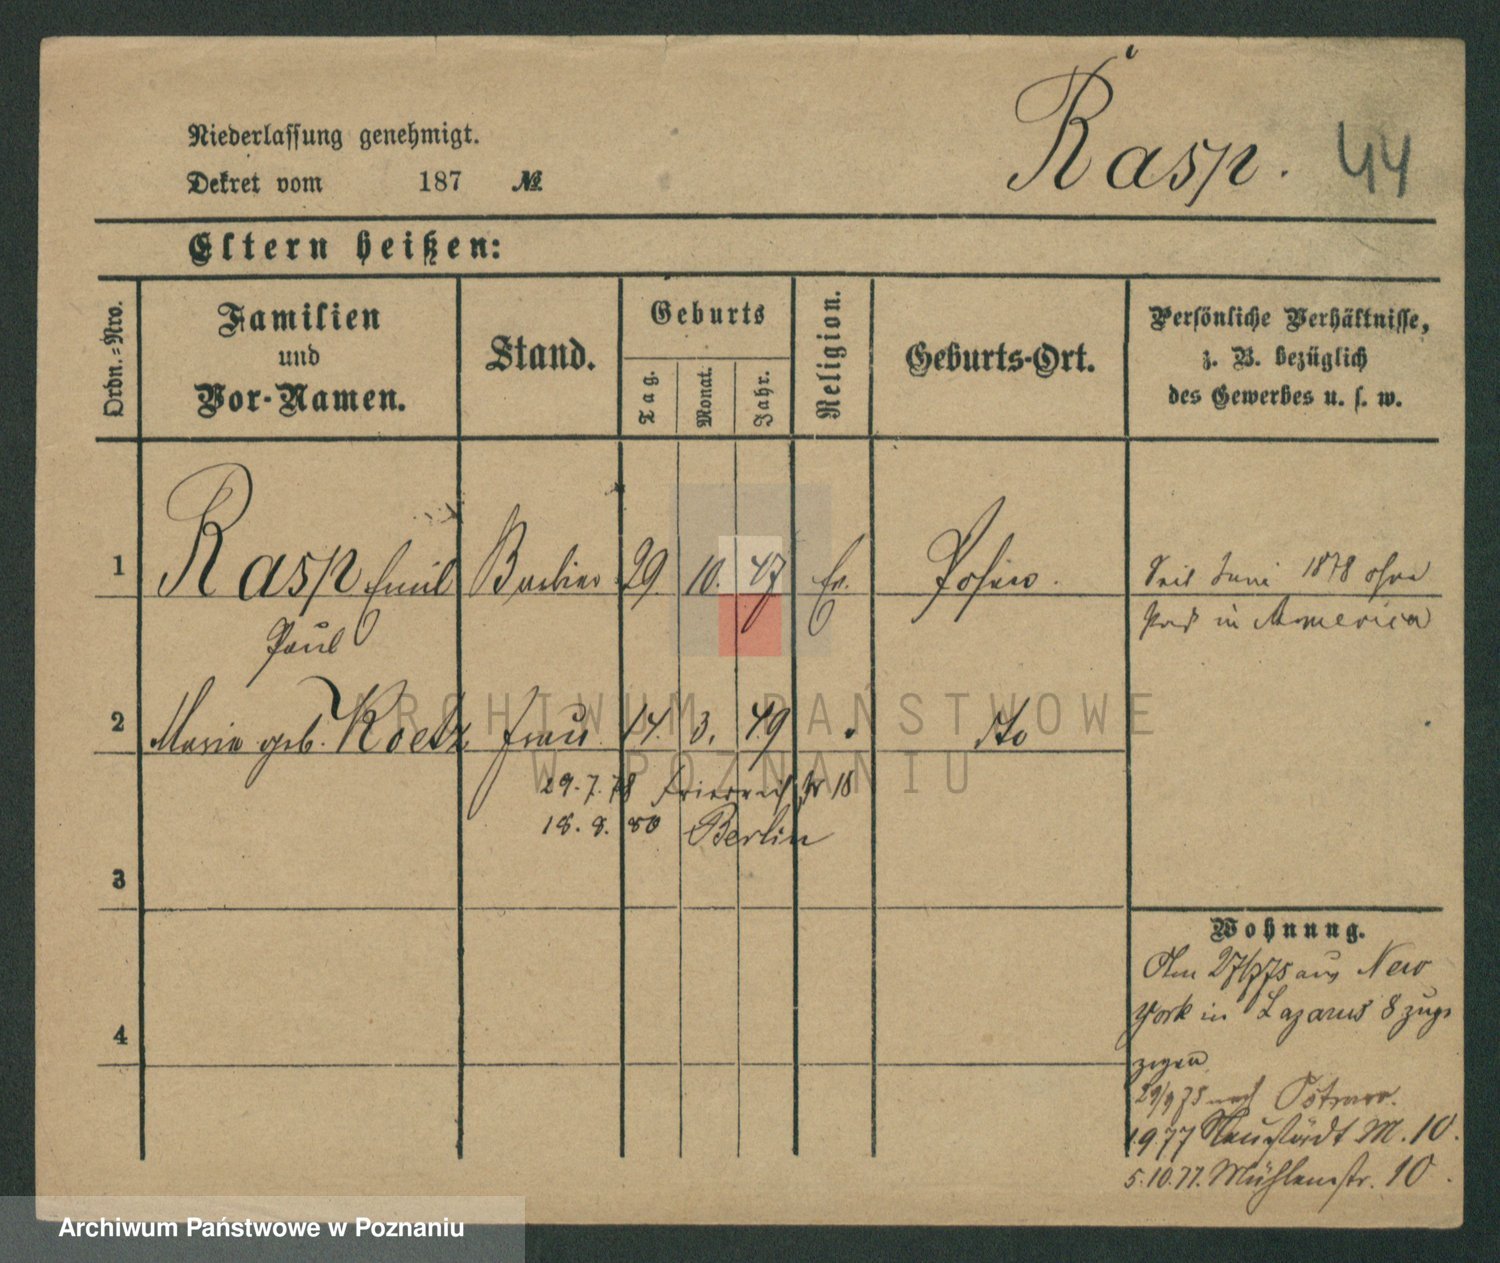 Rasp. 44
Niederlassung genehmigt.
Dekret vom 187 №
Eltern heißen:
Ordn.-Nro.
Familien
und
Vor-Namen.
Stand.
Geburts
Tag.
Monat.
Jahr.
Religion.
Geburts-Ort.
Persönliche Verhältnisse,
z. B. bezüglich
des Gewerbes u. s. w.
1 Rasp Emil Barbier 29. 10. 47 Ev. Posen. Seit Juni 1878 ohne
Paul
Paß in America
2 Maria geb. Koetz Frau 14. 3. 49 " dto
29.7.78 Friedrich Str 18
18. 8. 80 Berlin
3
4
Wohnung.
Am 27/7 75 aus New
York in Lazarus 8 zuge
zogen
29/9 75 nach Ostrowo.
1.9.77 Neustädt M. 10.
5.10.77. Mühlenstr. 10.
ARCHIWUM PAŃSTWOWE
W POZNANIU
Archiwum Państwowe w Poznaniu